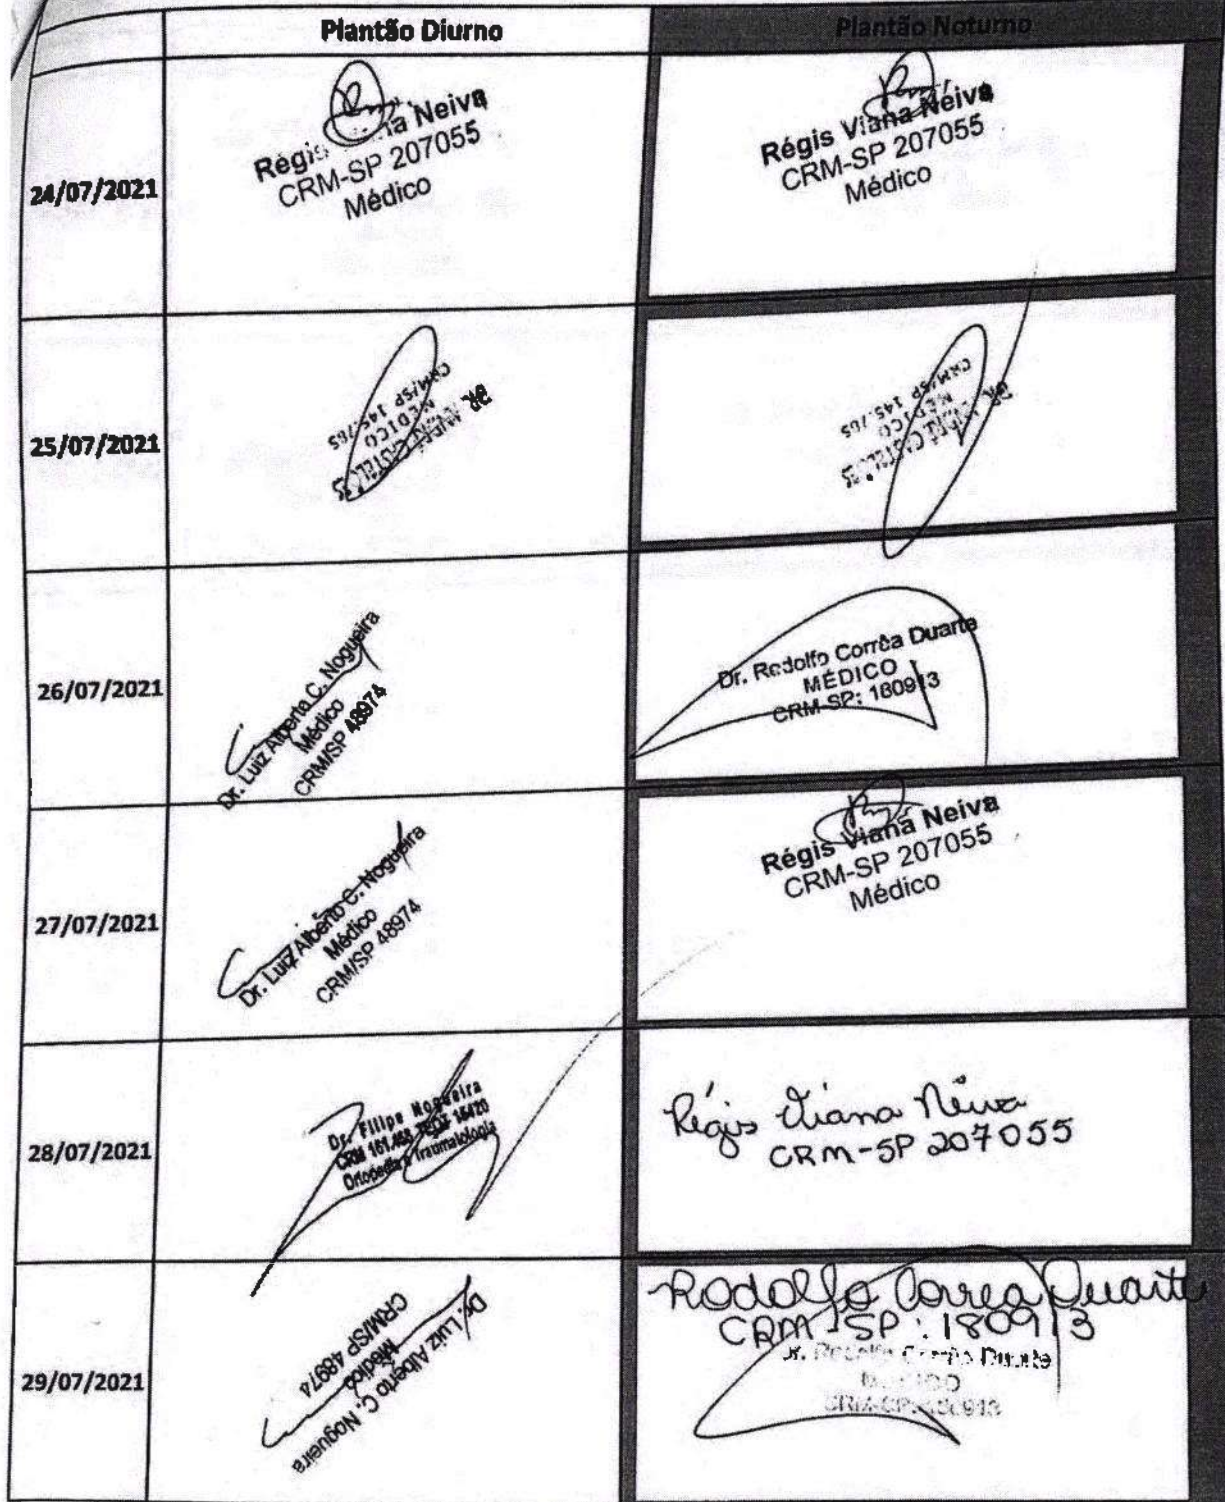 Plantão Diurno
Plantão Noturno
24/07/2021
Régis Viana Neiva
CRM-SP 207055
Médico
Régis Viana Neiva
CRM-SP 207055
Médico
25/07/2021
DR. ANDRÉ
MÉDICO
CRM/SP 145.785
DR. ANDRÉ
MÉDICO
CRM/SP 145.785
26/07/2021
Dr. Luiz Alberto C. Nogueira
Médico
CRM/SP 48974
Dr. Rodolfo Corrêa Duarte
MÉDICO
CRM-SP: 180913
27/07/2021
Dr. Luiz Alberto C. Nogueira
Médico
CRM/SP 48974
Régis Viana Neiva
CRM-SP 207055
Médico
28/07/2021
Dr. Filipe Nogueira
CRM TEOT
Ortopedia e Traumatologia
Régis Viana Neiva
CRM-SP 207055
29/07/2021
Dr. Luiz Alberto C. Nogueira
Médico
CRM/SP 48974
Rodolfo Correa Duarte
CRM-SP: 180913
Dr. Rodolfo Corrêa Duarte
MÉDICO
CRM-SP: 180913